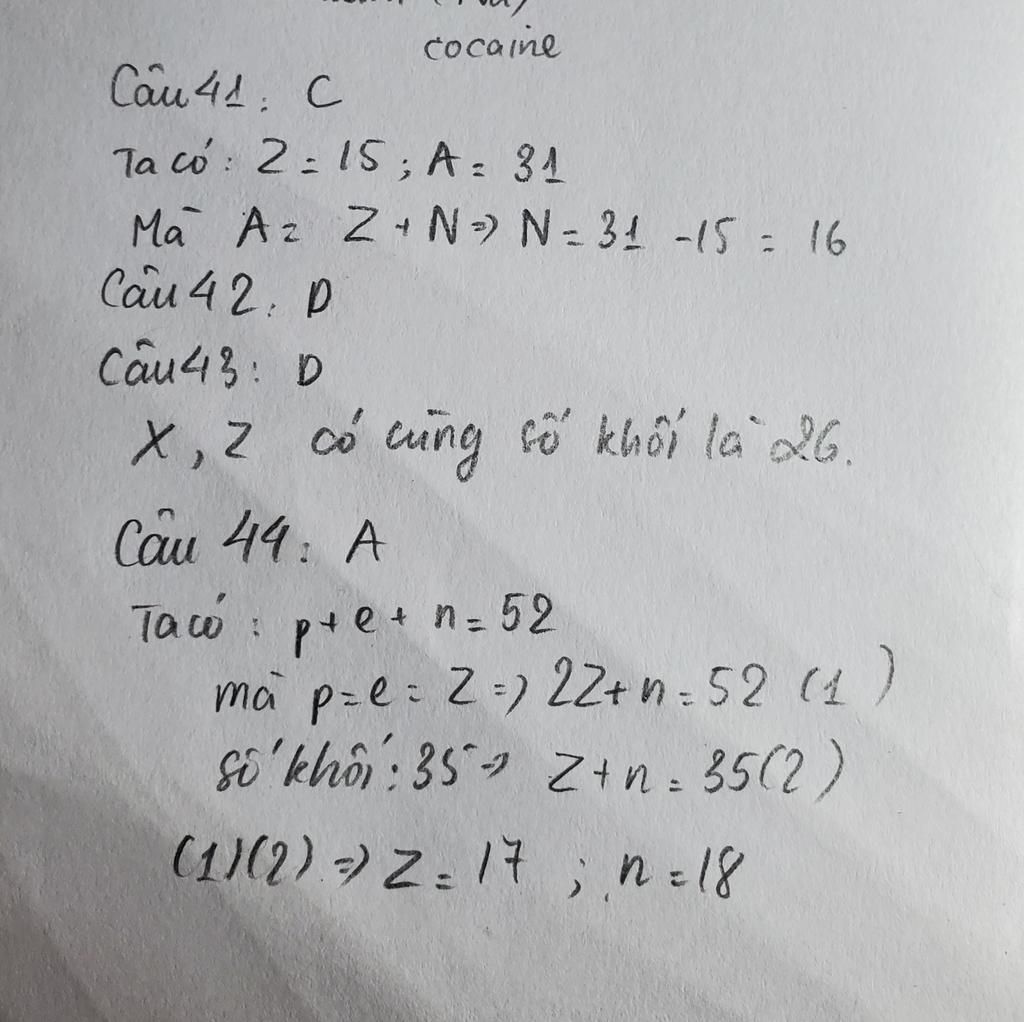 cocaine
Câu 41: C
Ta có: Z = 15 ; A = 31
Mà A = Z + N => N = 31 - 15 = 16
Câu 42: D
Câu 43: D
X, Z có cùng số khối là 26.
Câu 44: A
Ta có : p + e + n = 52
mà p = e = Z => 2Z + n = 52 (1)
số khối : 35 => Z + n = 35 (2)
(1)(2) => Z = 17 ; n = 18